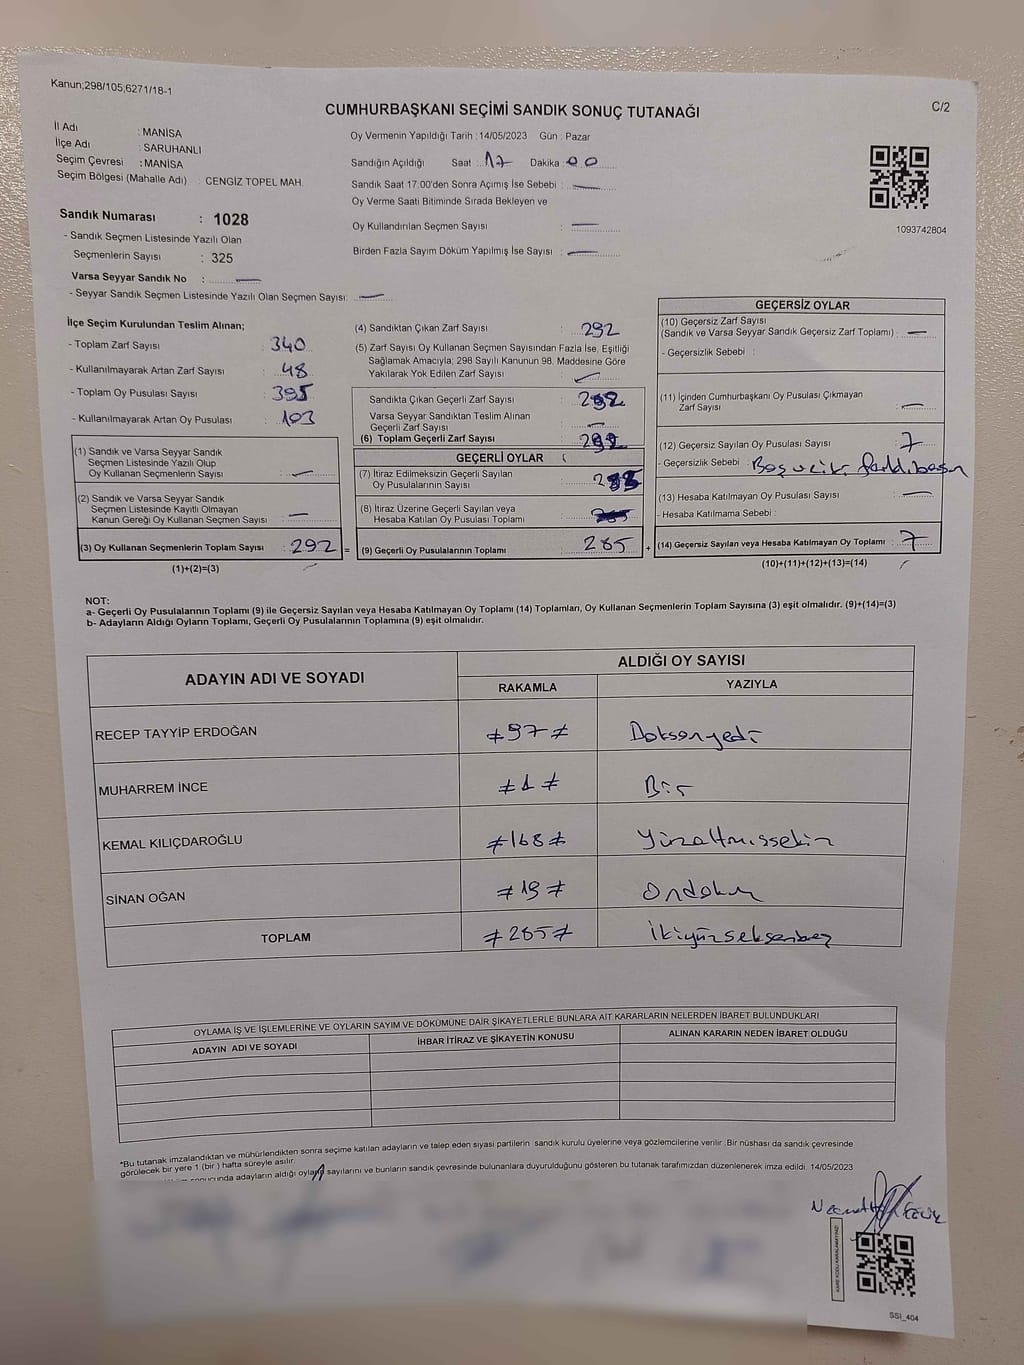 Kanun;298/105;6271/18-1
C/2
CUMHURBAŞKANI SEÇİMİ SANDIK SONUÇ TUTANAĞI
İl Adı : MANİSA
İlçe Adı : SARUHANLI
Seçim Çevresi : MANİSA
Seçim Bölgesi (Mahalle Adı) : CENGİZ TOPEL MAH.
Sandık Numarası : 1028
- Sandık Seçmen Listesinde Yazılı Olan
Seçmenlerin Sayısı : 325
Varsa Seyyar Sandık No :
- Seyyar Sandık Seçmen Listesinde Yazılı Olan Seçmen Sayısı:
Oy Vermenin Yapıldığı Tarih : 14/05/2023 Gün : Pazar
Sandığın Açıldığı Saat : 17 Dakika : 00
Sandık Saat 17:00'den Sonra Açımış İse Sebebi :
Oy Verme Saati Bitiminde Sırada Bekleyen ve
Oy Kullandırılan Seçmen Sayısı :
Birden Fazla Sayım Döküm Yapılmış İse Sayısı :
1093742804
İlçe Seçim Kurulundan Teslim Alınan;
- Toplam Zarf Sayısı : 340
- Kullanılmayarak Artan Zarf Sayısı : 48
- Toplam Oy Pusulası Sayısı : 395
- Kullanılmayarak Artan Oy Pusulası : 103
(1) Sandık ve Varsa Seyyar Sandık
Seçmen Listesinde Yazılı Olup
Oy Kullanan Seçmenlerin Sayısı :
(2) Sandık ve Varsa Seyyar Sandık
Seçmen Listesinde Kayıtlı Olmayan
Kanun Gereği Oy Kullanan Seçmen Sayısı :
(3) Oy Kullanan Seçmenlerin Toplam Sayısı : 292 =
(1)+(2)=(3)
(4) Sandıktan Çıkan Zarf Sayısı : 292
(5) Zarf Sayısı Oy Kullanan Seçmen Sayısından Fazla İse, Eşitliği
Sağlamak Amacıyla; 298 Sayılı Kanunun 98. Maddesine Göre
Yakılarak Yok Edilen Zarf Sayısı :
Sandıkta Çıkan Geçerli Zarf Sayısı : 292
Varsa Seyyar Sandıktan Teslim Alınan
Geçerli Zarf Sayısı :
(6) Toplam Geçerli Zarf Sayısı : 292
GEÇERLİ OYLAR
(7) İtiraz Edilmeksizin Geçerli Sayılan
Oy Pusulalarının Sayısı :
(8) İtiraz Üzerine Geçerli Sayılan veya
Hesaba Katılan Oy Pusulası Toplamı :
(9) Geçerli Oy Pusulalarının Toplamı : 285 +
GEÇERSİZ OYLAR
(10) Geçersiz Zarf Sayısı
(Sandık ve Varsa Seyyar Sandık Geçersiz Zarf Toplamı) :
- Geçersizlik Sebebi :
(11) İçinden Cumhurbaşkanı Oy Pusulası Çıkmayan
Zarf Sayısı :
(12) Geçersiz Sayılan Oy Pusulası Sayısı : 7
- Geçersizlik Sebebi :
(13) Hesaba Katılmayan Oy Pusulası Sayısı :
- Hesaba Katılmama Sebebi :
(14) Geçersiz Sayılan veya Hesaba Katılmayan Oy Toplamı : 7
(10)+(11)+(12)+(13)=(14)
NOT:
a- Geçerli Oy Pusulalarının Toplamı (9) ile Geçersiz Sayılan veya Hesaba Katılmayan Oy Toplamı (14) Toplamları, Oy Kullanan Seçmenlerin Toplam Sayısına (3) eşit olmalıdır. (9)+(14)=(3)
b- Adayların Aldığı Oyların Toplamı, Geçerli Oy Pusulalarının Toplamına (9) eşit olmalıdır.
ADAYIN ADI VE SOYADI
ALDIĞI OY SAYISI
RAKAMLA YAZIYLA
RECEP TAYYİP ERDOĞAN ≠97≠ Doksanyedi
MUHARREM İNCE ≠1≠ Bir
KEMAL KILIÇDAROĞLU ≠168≠ Yüzaltmışsekiz
SİNAN OĞAN ≠19≠ Ondokuz
TOPLAM ≠285≠ İkiyüzseksenbeş
OYLAMA İŞ VE İŞLEMLERİNE VE OYLARIN SAYIM VE DÖKÜMÜNE DAİR ŞİKAYETLERLE BUNLARA AİT KARARLARIN NELERDEN İBARET BULUNDUKLARI
ADAYIN ADI VE SOYADI İHBAR İTİRAZ VE ŞİKAYETİN KONUSU ALINAN KARARIN NEDEN İBARET OLDUĞU
*Bu tutanak imzalandıktan ve mühürlendikten sonra seçime katılan adayların ve talep eden siyasi partilerin sandık kurulu üyelerine veya gözlemcilerine verilir. Bir nüshası da sandık çevresinde
görülecek bir yere 1 (bir ) hafta süreyle asılır.
sonucunda adayların aldığı oyların sayılarını ve bunların sandık çevresinde bulunanlara duyurulduğunu gösteren bu tutanak tarafımızdan düzenlenerek imza edildi. 14/05/2023
KARE KODU KARALAMAYINIZ!
SSI_404